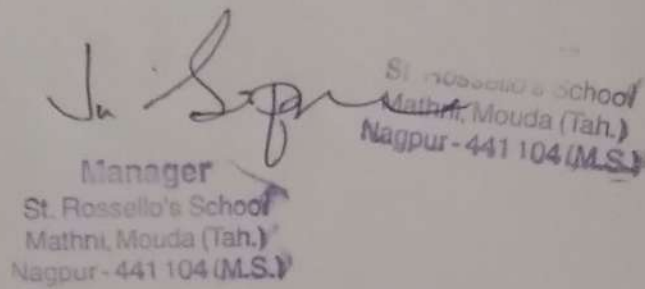 St. Rossello's School
Mathni, Mouda (Tah.)
Nagpur - 441 104 (M.S.)
Manager
St. Rossello's School
Mathni, Mouda (Tah.)
Nagpur - 441 104 (M.S.)